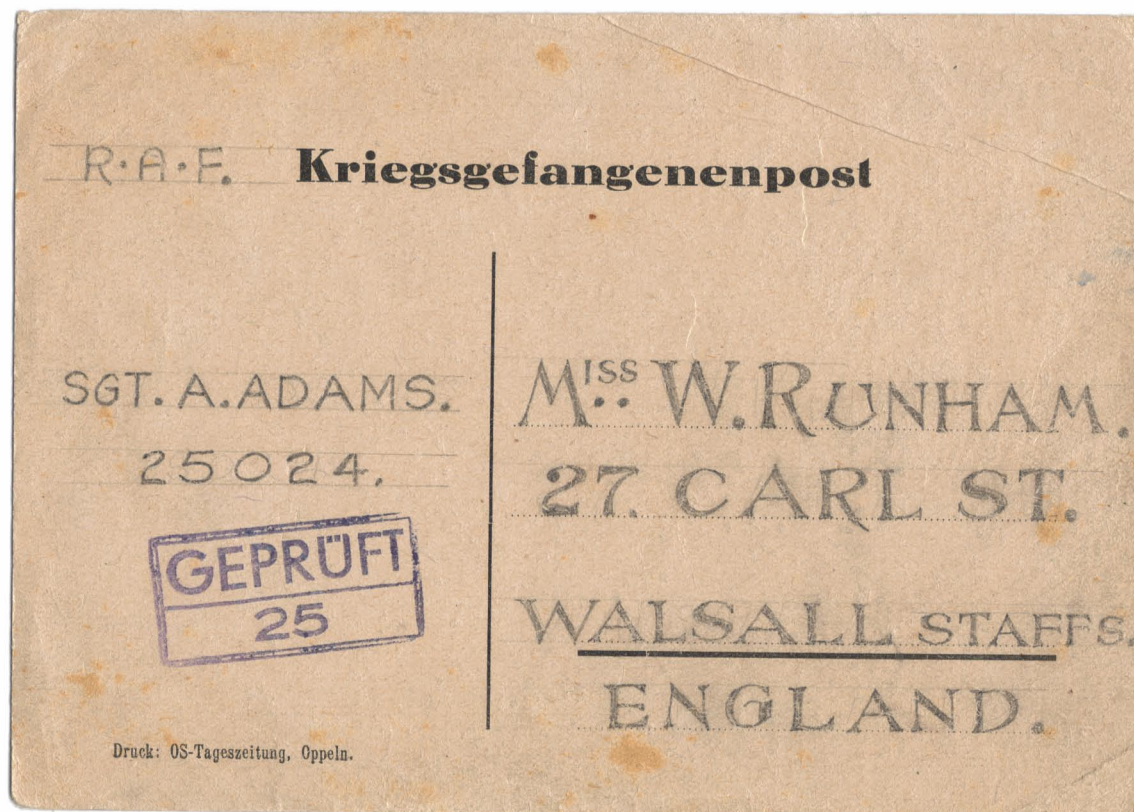 R.A.F. Kriegsgefangenenpost
SGT. A. ADAMS.
25024.
GEPRÜFT
25
Druck: OS-Tageszeitung, Oppeln.
MISS W. RUNHAM.
27. CARL ST.
WALSALL STAFFS.
ENGLAND.